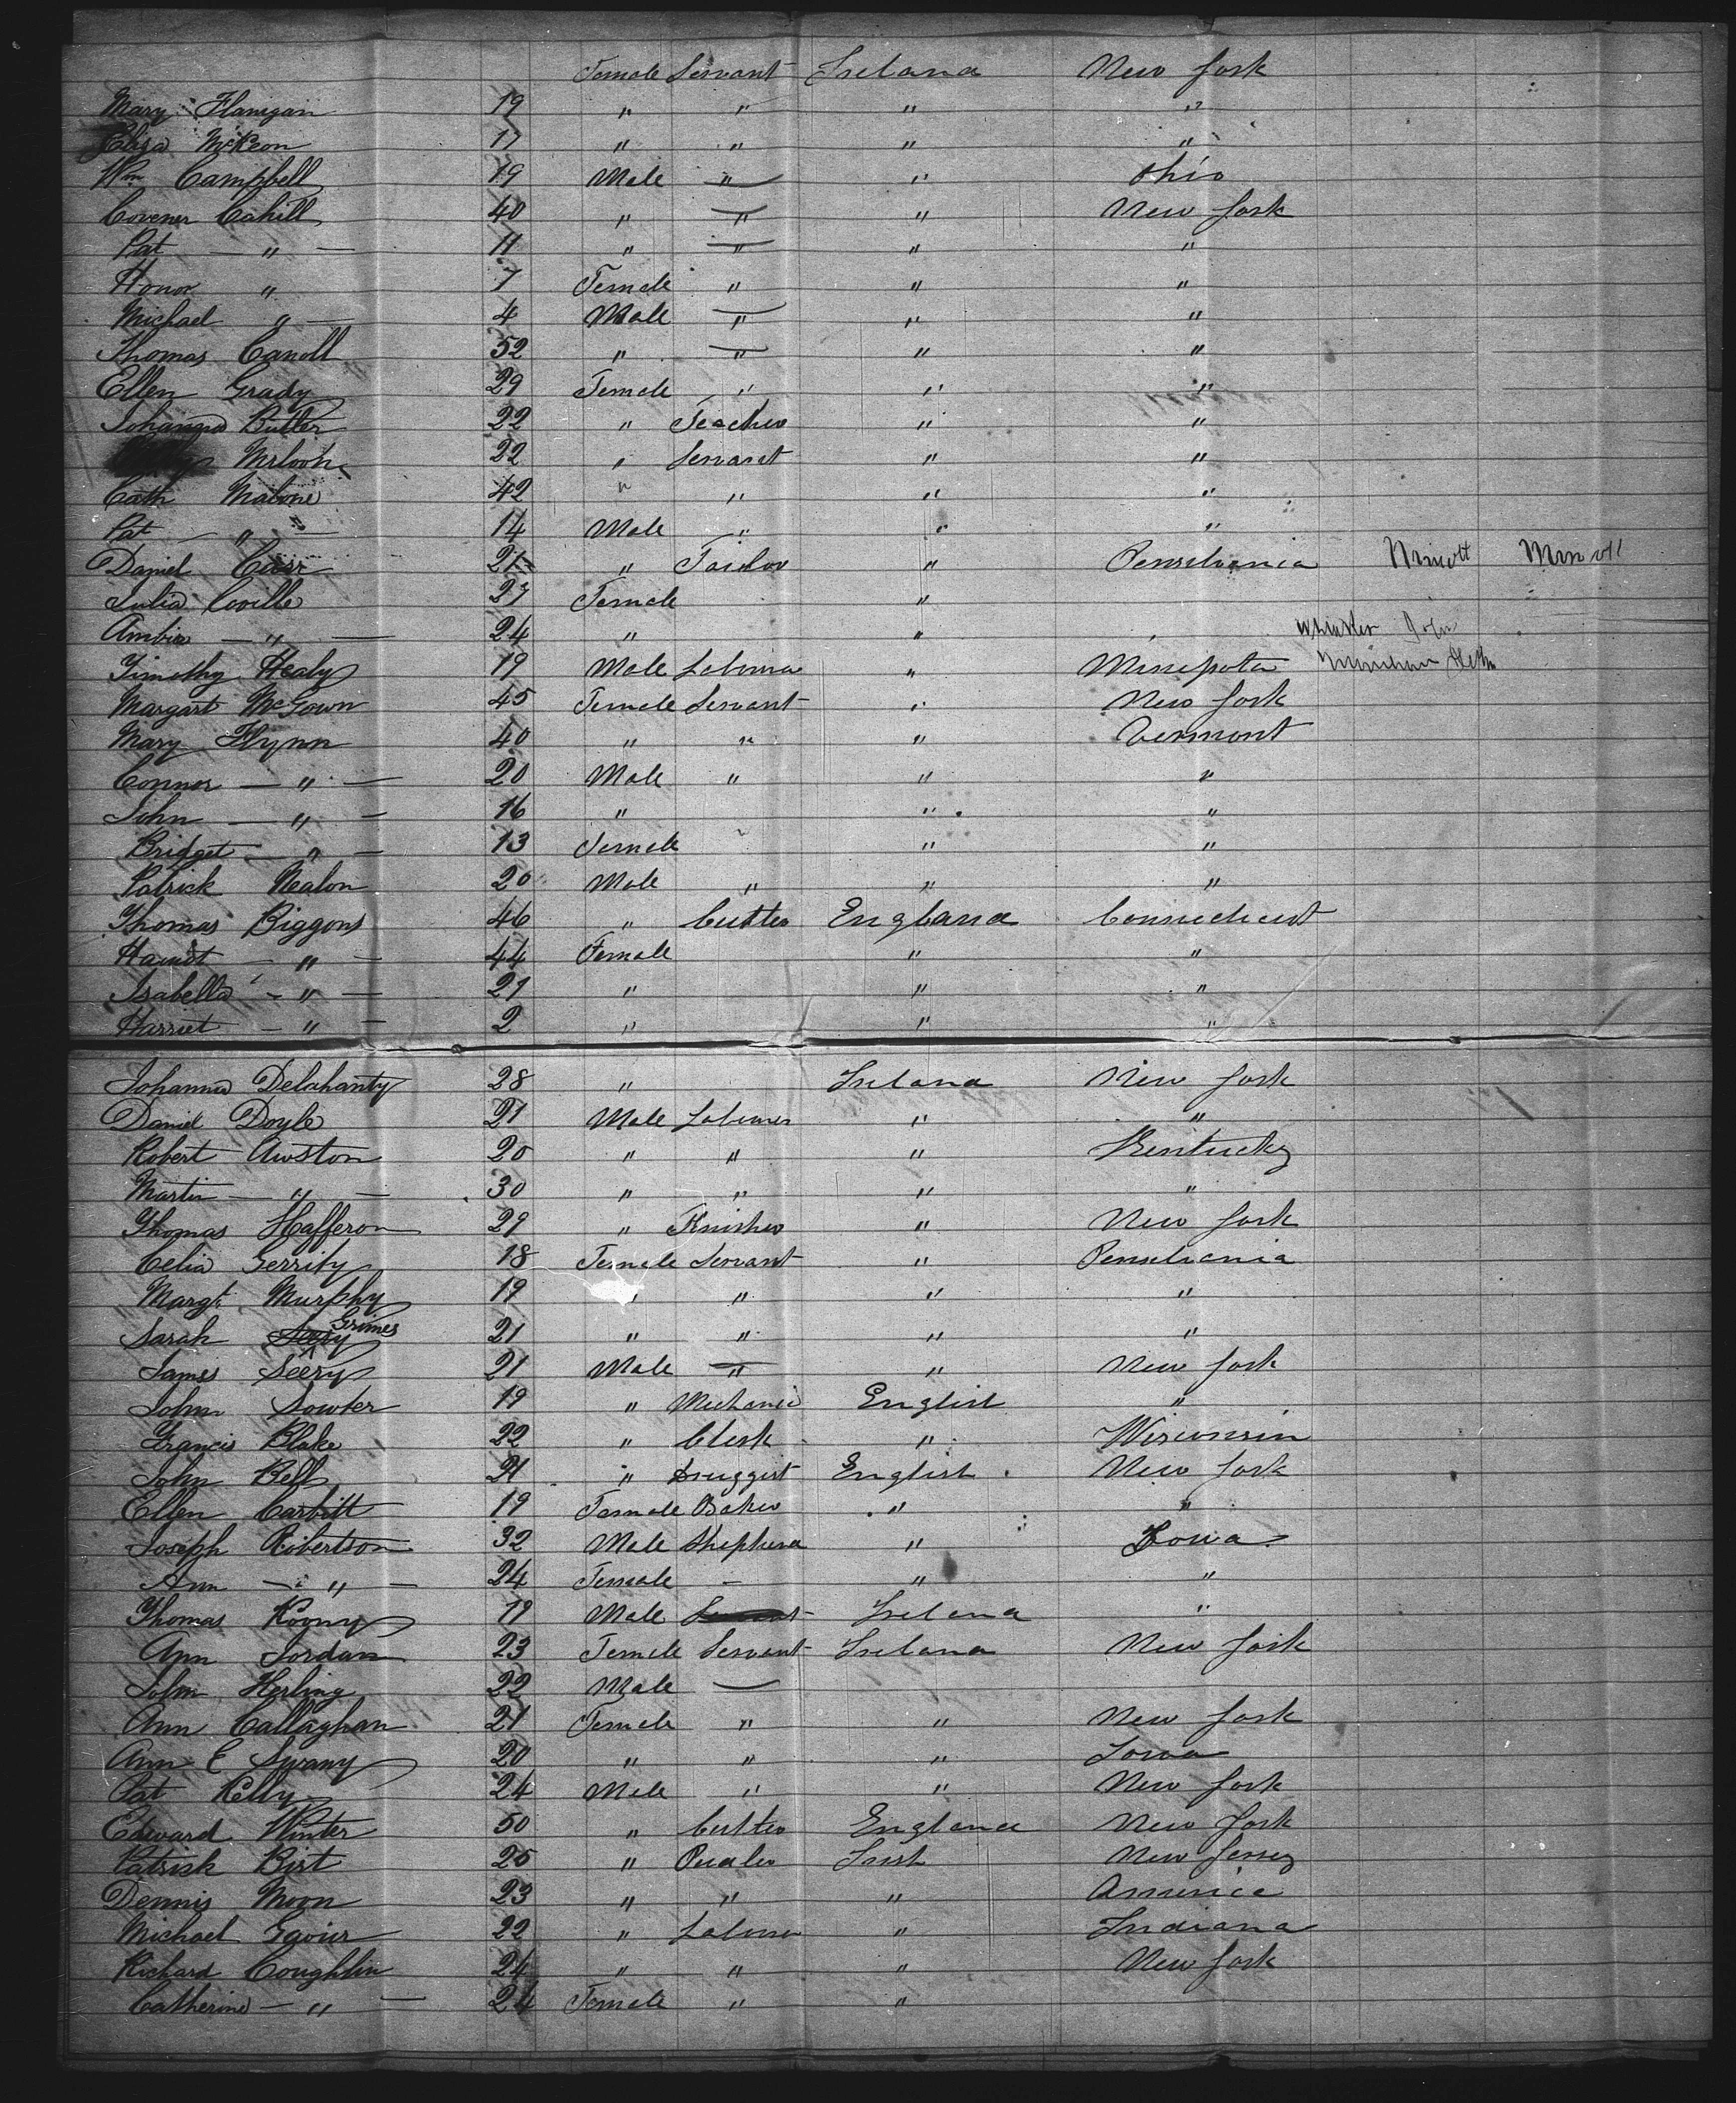 Female Servant Ireland New York
Mary Flanigan 19 " " " "
Eliza McKeon 17 " " " "
Wm Campbell 19 Male " " Ohio
Covener Cahill 40 " " " New York
Pat — " — 11 " " " "
Honor " 7 Female " " "
Michael " — 4 Male " " "
Thomas Caroll 52 " " " "
Ellen Grady 29 Female " " "
Johanna Butler 22 " Teacher " "
22 " Servant " "
Cath Malone 42 " " " "
Pat — " — 14 Male " " "
Daniel Carr 21 " Tailor " Pensilvania
Julia Coville 27 Female "
— " — 24 " "
Timothy Healy 19 Male Labourer " Minesota
Margart McGown 45 Female Servant " New York
Mary Flynn 40 " " " Vermont
Connor — " — 20 Male " " "
John — " — 16 " " "
Bridget — " — 13 Female " "
Patrick Nealon 20 Male " " "
Thomas Biggons 46 " Cutter England Connecticut
— " — 44 Female " "
Isabella — " — 21 " " "
Harriet — " — 2 " " "
Johanna Delahanty 28 " Ireland New York
Daniel Doyle 21 Male Labourer " "
Robert Awston 20 " " " Kentucky
Martin — " — 30 " " " "
Thomas Hafferon 29 " Finisher " New York
Celia Gerrity 18 Female Servant " Pensilvania
Margt. Murphy 19 " " " "
Sarah Seery Grimes 21 " " " "
James Seery 21 Male " " New York
John Sowter 19 " Mechanic English "
Francis Blake 22 " Clerk " Wisconsin
John Bell 21 " Druggist English New York
Ellen Carbitt 19 Female Baker " "
Joseph Robertson 32 Male Shepherd " Iowa
Ann — " — 24 Female — " "
Thomas Roony 19 Male Servant Ireland "
Ann Jordan 23 Female Servant Ireland New York
John Herling 22 Male —
Ann Callaghan 21 Female " " New York
Ann E Swany 20 " " " Iowa
Pat Kelly 24 Male " " New York
Edward Winter 50 " Cutter England New York
Patrick Birt 25 " Irish New Jersey
Dennis Moon 23 " " " America
Michael 22 " Labourer " Indiana
Richard Coughlin 24 " " " New York
Catherine — " — 24 Female " "